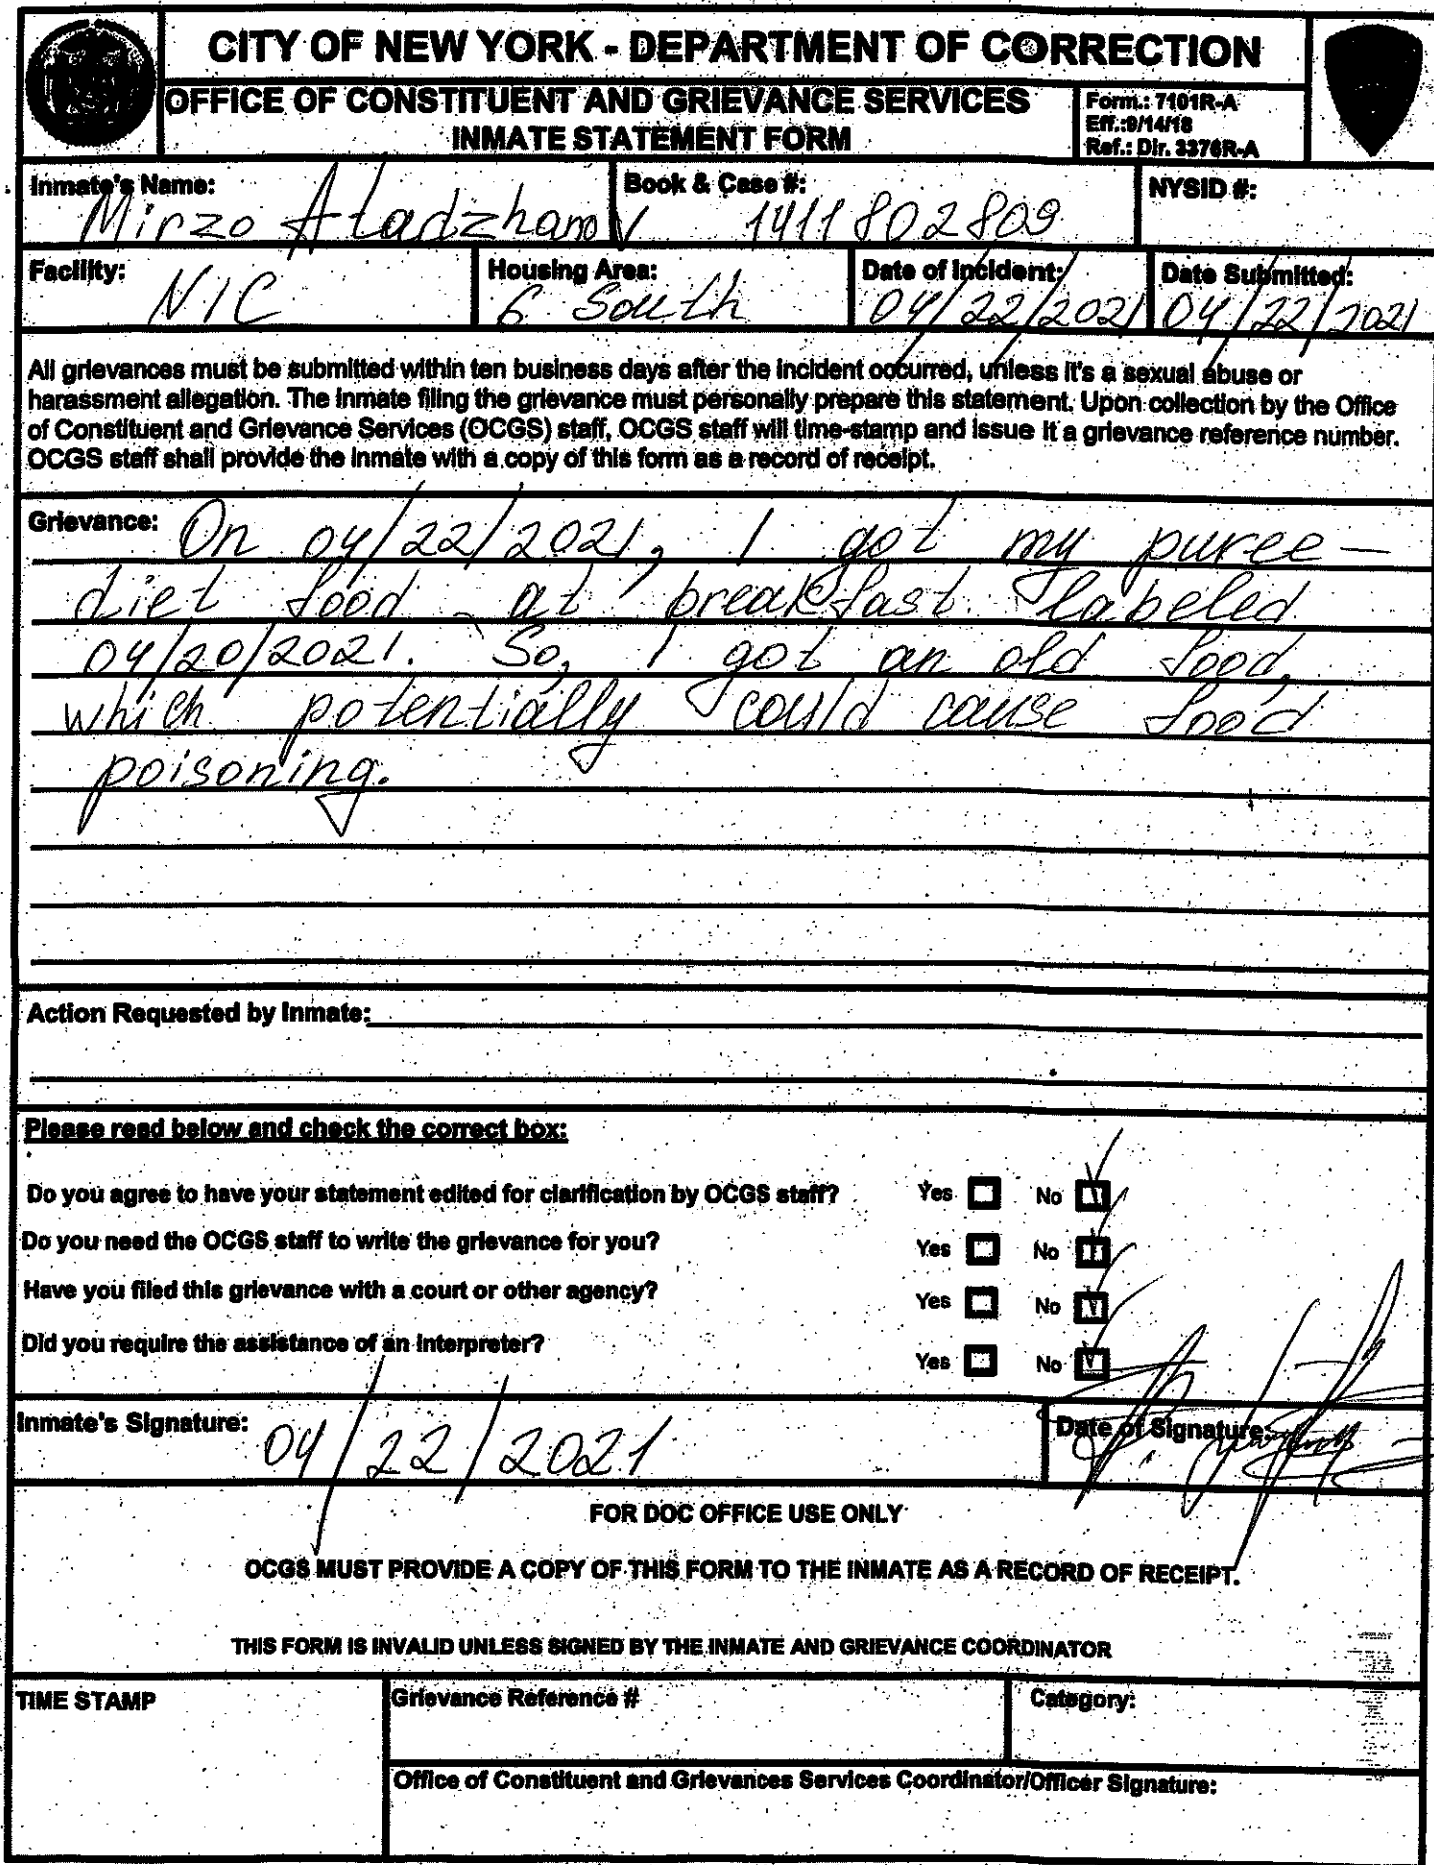 CITY OF NEW YORK - DEPARTMENT OF CORRECTION
OFFICE OF CONSTITUENT AND GRIEVANCE SERVICES
INMATE STATEMENT FORM
Form.: 7101R-A
Eff.:9/14/18
Ref.: Dir. 3376R-A
Inmate's Name:
Mirzo Atadzhanov
Book & Case #:
1411802809
NYSID #:
Facility:
NIC
Housing Area:
6 South
Date of Incident:
04/22/2021
Date Submitted:
04/22/2021
All grievances must be submitted within ten business days after the incident occurred, unless it's a sexual abuse or
harassment allegation. The inmate filing the grievance must personally prepare this statement. Upon collection by the Office
of Constituent and Grievance Services (OCGS) staff, OCGS staff will time-stamp and issue it a grievance reference number.
OCGS staff shall provide the inmate with a copy of this form as a record of receipt.
Grievance: On 04/22/2021, I got my puree-
diet food at breakfast labeled
04/20/2021. So, I got an old food,
which potentially could cause food
poisoning.
Action Requested by Inmate:
Please read below and check the correct box:
Do you agree to have your statement edited for clarification by OCGS staff? Yes No
Do you need the OCGS staff to write the grievance for you? Yes No
Have you filed this grievance with a court or other agency? Yes No
Did you require the assistance of an interpreter? Yes No
Inmate's Signature: 04/22/2021
Date of Signature:
FOR DOC OFFICE USE ONLY
OCGS MUST PROVIDE A COPY OF THIS FORM TO THE INMATE AS A RECORD OF RECEIPT.
THIS FORM IS INVALID UNLESS SIGNED BY THE INMATE AND GRIEVANCE COORDINATOR
TIME STAMP
Grievance Reference #
Category:
Office of Constituent and Grievances Services Coordinator/Officer Signature: